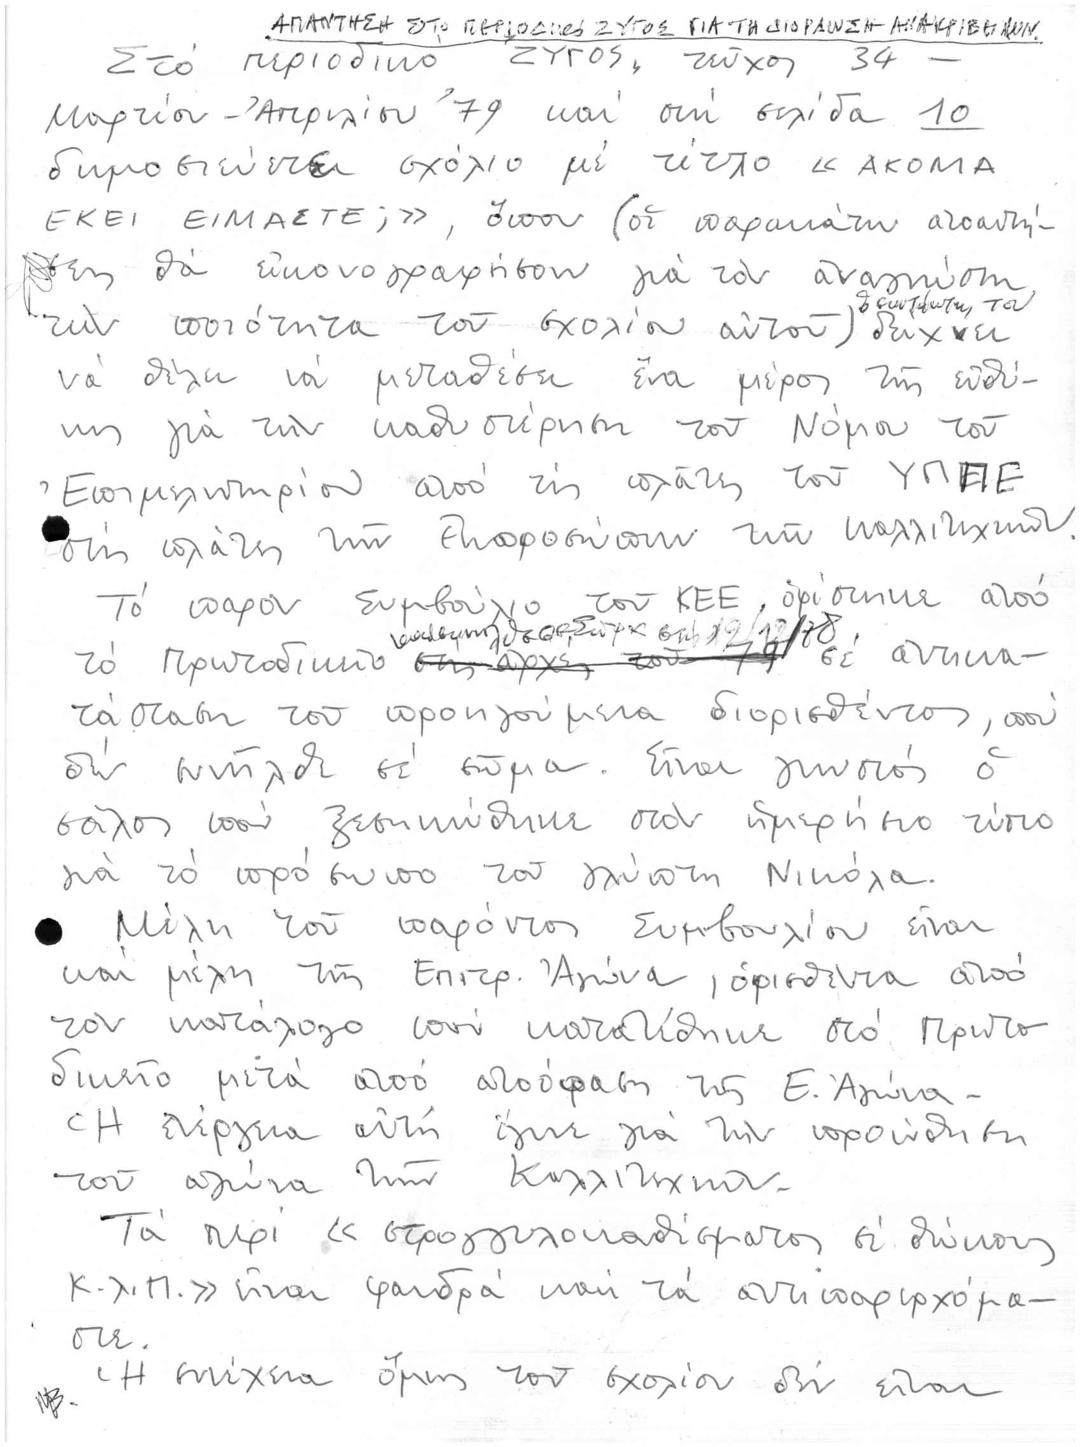 ΑΠΑΝΤΗΣΗ ΣΤΟ ΠΕΡΙΟΔΙΚΟ ΖΥΓΟΣ ΓΙΑ ΤΗ ΔΙΟΡΘΩΣΗ ΑΝΑΚΡΙΒΕΙΩΝ.
Στό περιοδικό ΖΥΓΟΣ, τεῦχος 34 –
Μαρτίου - Ἀπριλίου '79 καί στή σελίδα 10
δημοσιεύεται σχόλιο μέ τίτλο « ΑΚΟΜΑ
ΕΚΕΙ ΕΙΜΑΣΤΕ; », ὅπου (οἱ παρακάτω ἀπαντή-
σεις θά εἰκονογραφήσουν γιά τόν ἀναγνώστη
τήν ποιότητα τοῦ σχολίου αὐτοῦ) ὁ συντάκτης του δείχνει
νά θέλει νά μεταθέσει ἕνα μέρος τῆς εὐθύ-
νης γιά τήν καθυστέρηση τοῦ Νόμου τοῦ
Ἐπιμελητηρίου ἀπό τίς πλάτες τοῦ ΥΠΠΕ
στίς πλάτες τῶν Ἐκπροσώπων τῶν καλλιτεχνῶν.
Τό παρόν Συμβούλιο τοῦ ΚΕΕ, ὁρίστηκε ἀπό
σέ Σῶμα στίς 12/12/78
τό Πρωτοδικεῖο στίς ἀρχές τοῦ 79 σέ ἀντικα-
τάσταση τοῦ προηγούμενα διορισθέντος, πού
δέν συνῆλθε σέ σῶμα. Εἶναι γνωστός ὁ
σάλος πού ξεσηκώθηκε στόν ἡμερήσιο τύπο
γιά τό πρόσωπο τοῦ γλύπτη Νικόλα.
Μέλη τοῦ παρόντος Συμβουλίου εἶναι
καί μέλη τῆς Επιτρ. Ἀγώνα, ὁρισθέντα ἀπό
τόν κατάλογο πού κατατέθηκε στό Πρωτο
δικεῖο μετά ἀπό ἀπόφαση τῆς Ε. Ἀγώνα –
Ἡ ἐνέργεια αὐτή ἔγινε γιά τήν προώθηση
τοῦ ἀγώνα τῶν Καλλιτεχνῶν –
Τά περί « στρογγυλοκαθίσματος σέ θώκους
κ.λ.π. » εἶναι φαιδρά καί τά ἀντιπαρερχόμα-
στε.
Ἡ συνέχεια ὅμως τοῦ σχολίου δέν εἶναι